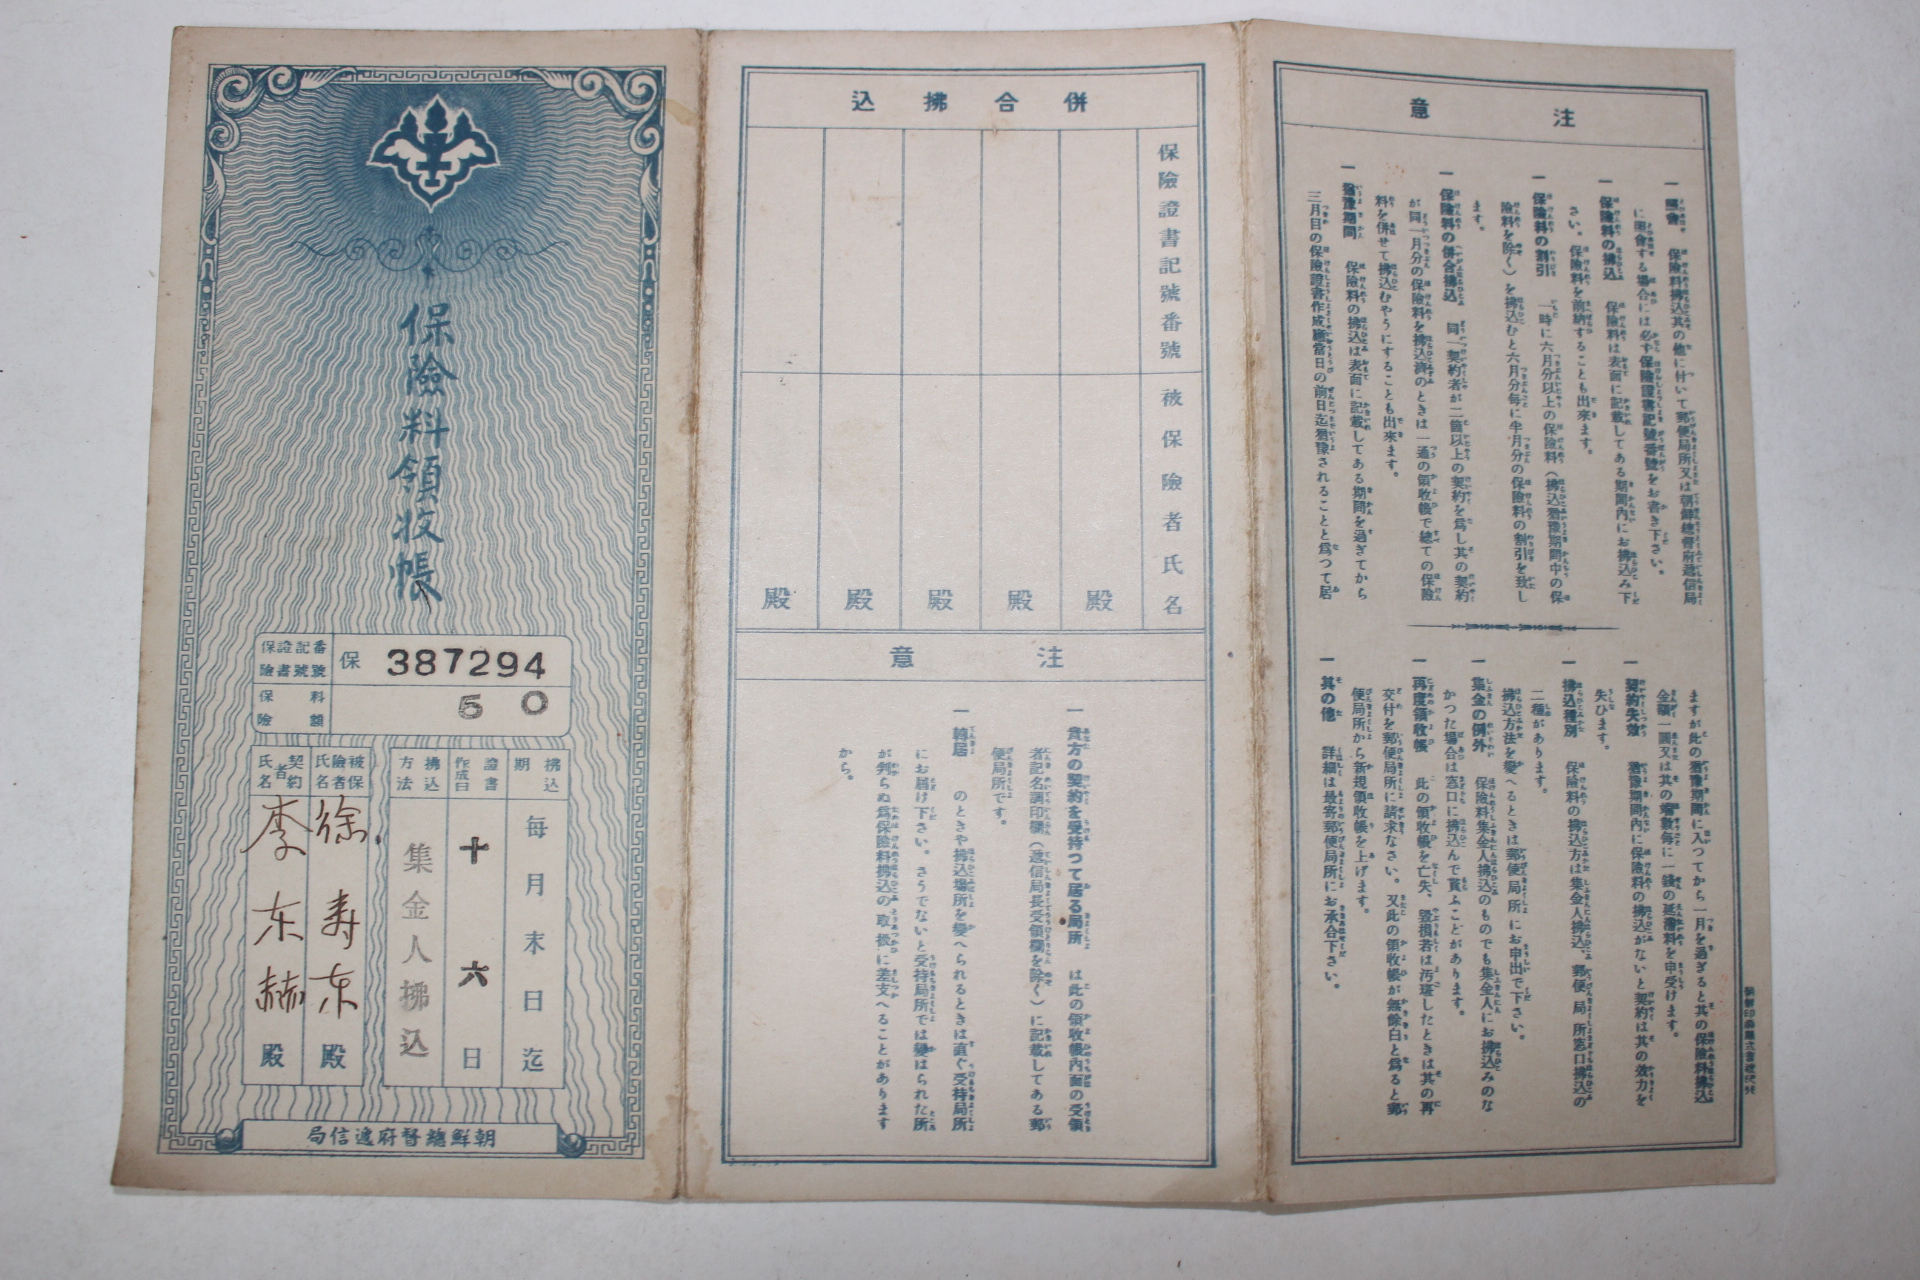 保險料領收帳
保險證書記號番號
保 387294
保險料額
50
拂込期
每月末日迄
證書作成日
十六日
拂込方法
集金人拂込
被保險者氏名
徐壽东殿
契約者氏名
李东赫殿
朝鮮總督府遞信局
併合拂込
保險證書記號番號
被保險者氏名
殿
殿
殿
殿
殿
注意
一 貴方の契約を受持つて居る局所 は此の領收帳內面の受領
者記名調印欄(遞信局長受領欄を除く)に記載してある郵
便局所です。
一 轉居 のときや拂込場所を變へられるときは直ぐ受持局所
にお届け下さい。さうでないと受持局所では變はられた所
が判らぬ爲保險料拂込の取扱に差支へることがあります
から。
注意
一 照會 保險料拂込其の他に付いて郵便局所又は朝鮮總督府遞信局
に照會する場合には必ず保險證書記號番號をお書き下さい。
一 保險料の拂込 保險料は表面に記載してある期間內にお拂込み下
さい。保險料を前納することも出來ます。
一 保險料の割引 一時に六月分以上の保險料(拂込猶豫期間中の保
險料を除く)を拂込むと六月分每に半月分の保險料の割引を致し
ます。
一 保險料の併合拂込 同一契約者が二箇以上の契約を爲し其の契約
が同一月分の保險料を拂込濟のときは一通の領收帳で總ての保險
料を併せて拂込むやうにすることも出來ます。
一 猶豫期間 保險料の拂込は表面に記載してある期間を過ぎてから
三月目の保險證書作成應當日の前日迄猶豫されることと爲つて居
ますが此の猶豫期間に入つてから一月を過ぎると其の保險料拂込
金額一圓又は其の端數每に一錢の延滯料を申受けます。
一 契約失效 猶豫期間內に保險料の拂込がないと契約は其の效力を
失ひます。
一 拂込種別 保險料の拂込方は集金人拂込、郵便局所窓口拂込の
二種があります。
拂込方法を變へるときは郵便局所にお申出で下さい。
一 集金の例外 保險料集金人拂込のものでも集金人にお拂込みのな
かつた場合は窓口に拂込んで貰ふことがあります。
一 再度領收帳 此の領收帳を亡失、毀損若は汚斑したときは其の再
交付を郵便局所に請求なさい。又此の領收帳が無餘白と爲ると郵
便局所から新規領收帳を上げます。
一 其の他 詳細は最寄郵便局所にお承合下さい。